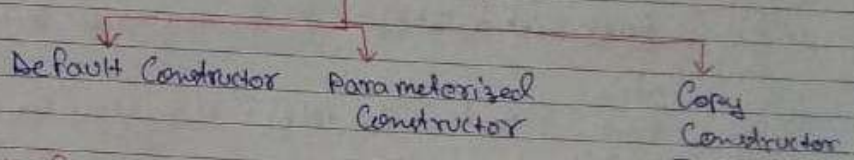 Default Constructor Parameterized Copy
Constructor Constructor